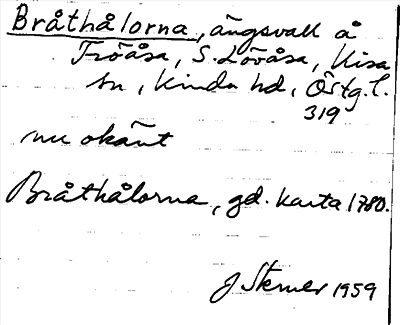 Bråthålorna, ängsvall å
Fröåsa, S. Lövåsa, Kisa
sn, Kinda hd, Östg. l.
319
nu okänt
Bråthålorna, gd. karta 1780.
J Sterner 1959